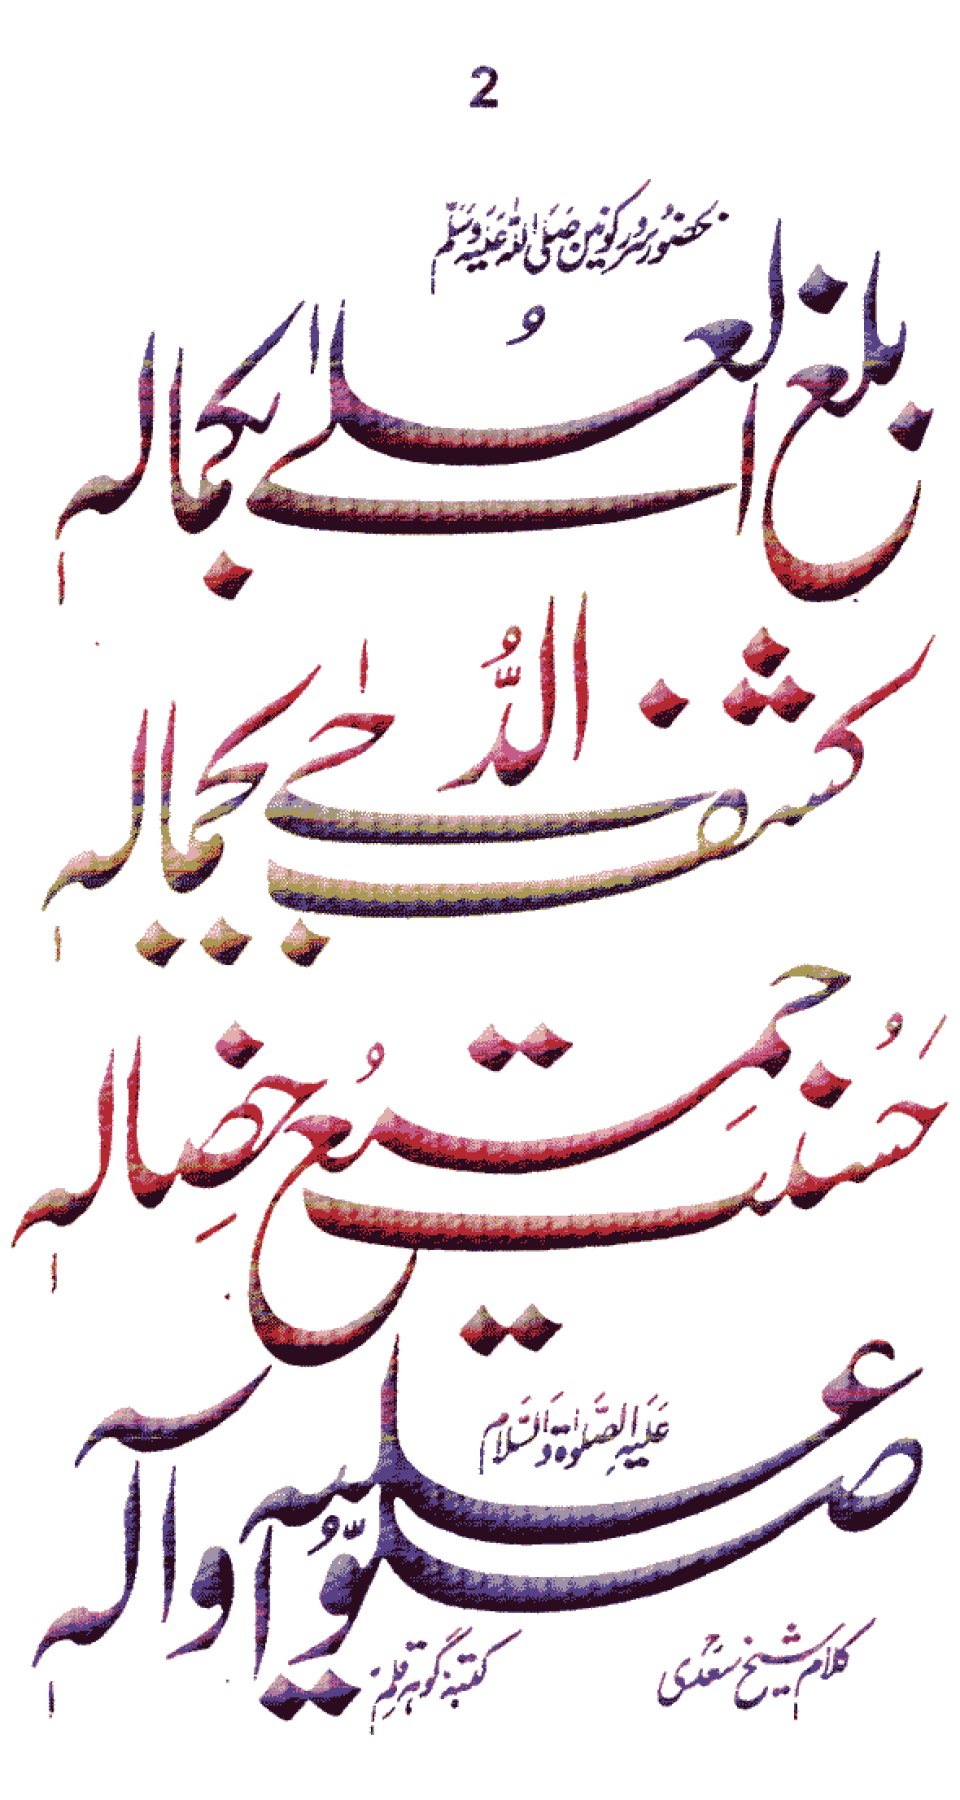 2
بحضور سرور کونین صَلَّی اللہُ عَلَیہِ وَسَلَّم
بلغ العلےٰ بکمالہٖ
کشف الدُّجےٰ بجمالہٖ
حَسُنَت جمِیعُ خِصالہٖ
عَلَیہِ الصَّلوٰۃ وَالسَّلام
صلّوا علیہ وآلہٖ
کلام شیخ سعدی
کتبہٗ گوہر قلم